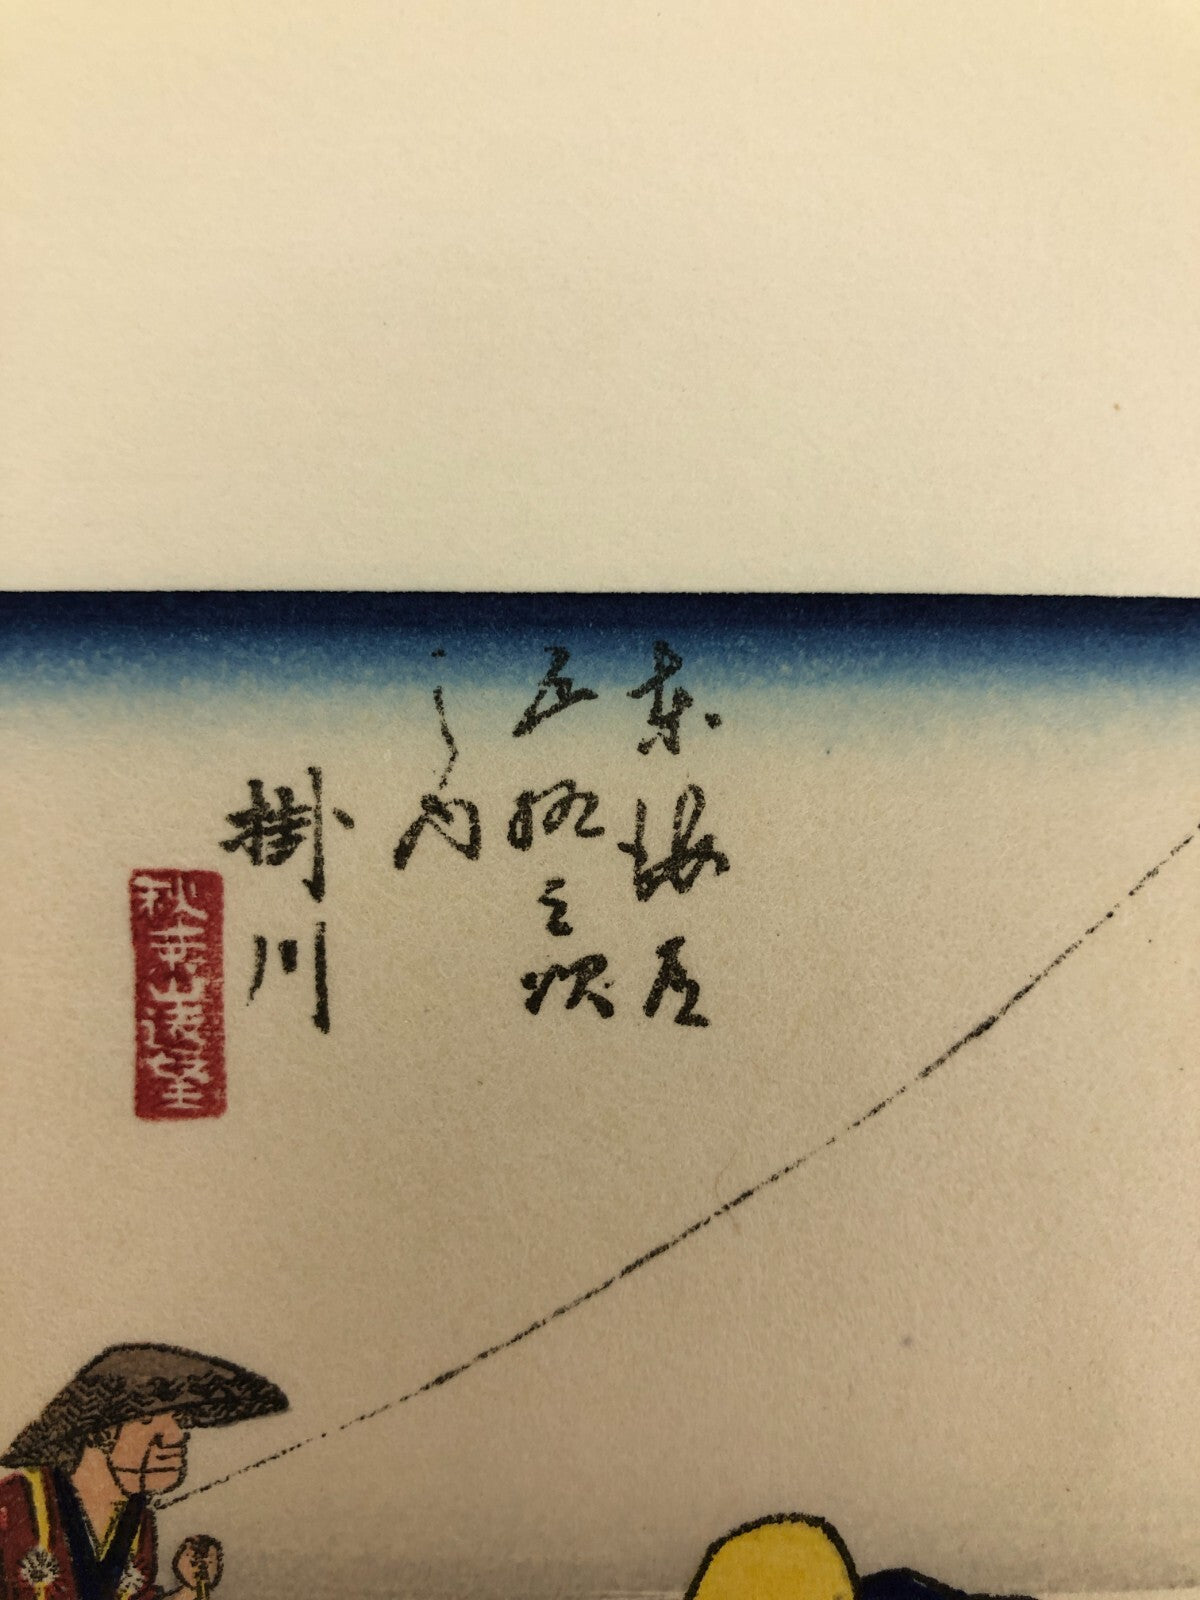 東海道
五拾三次
之内
掛川
秋葉遠望